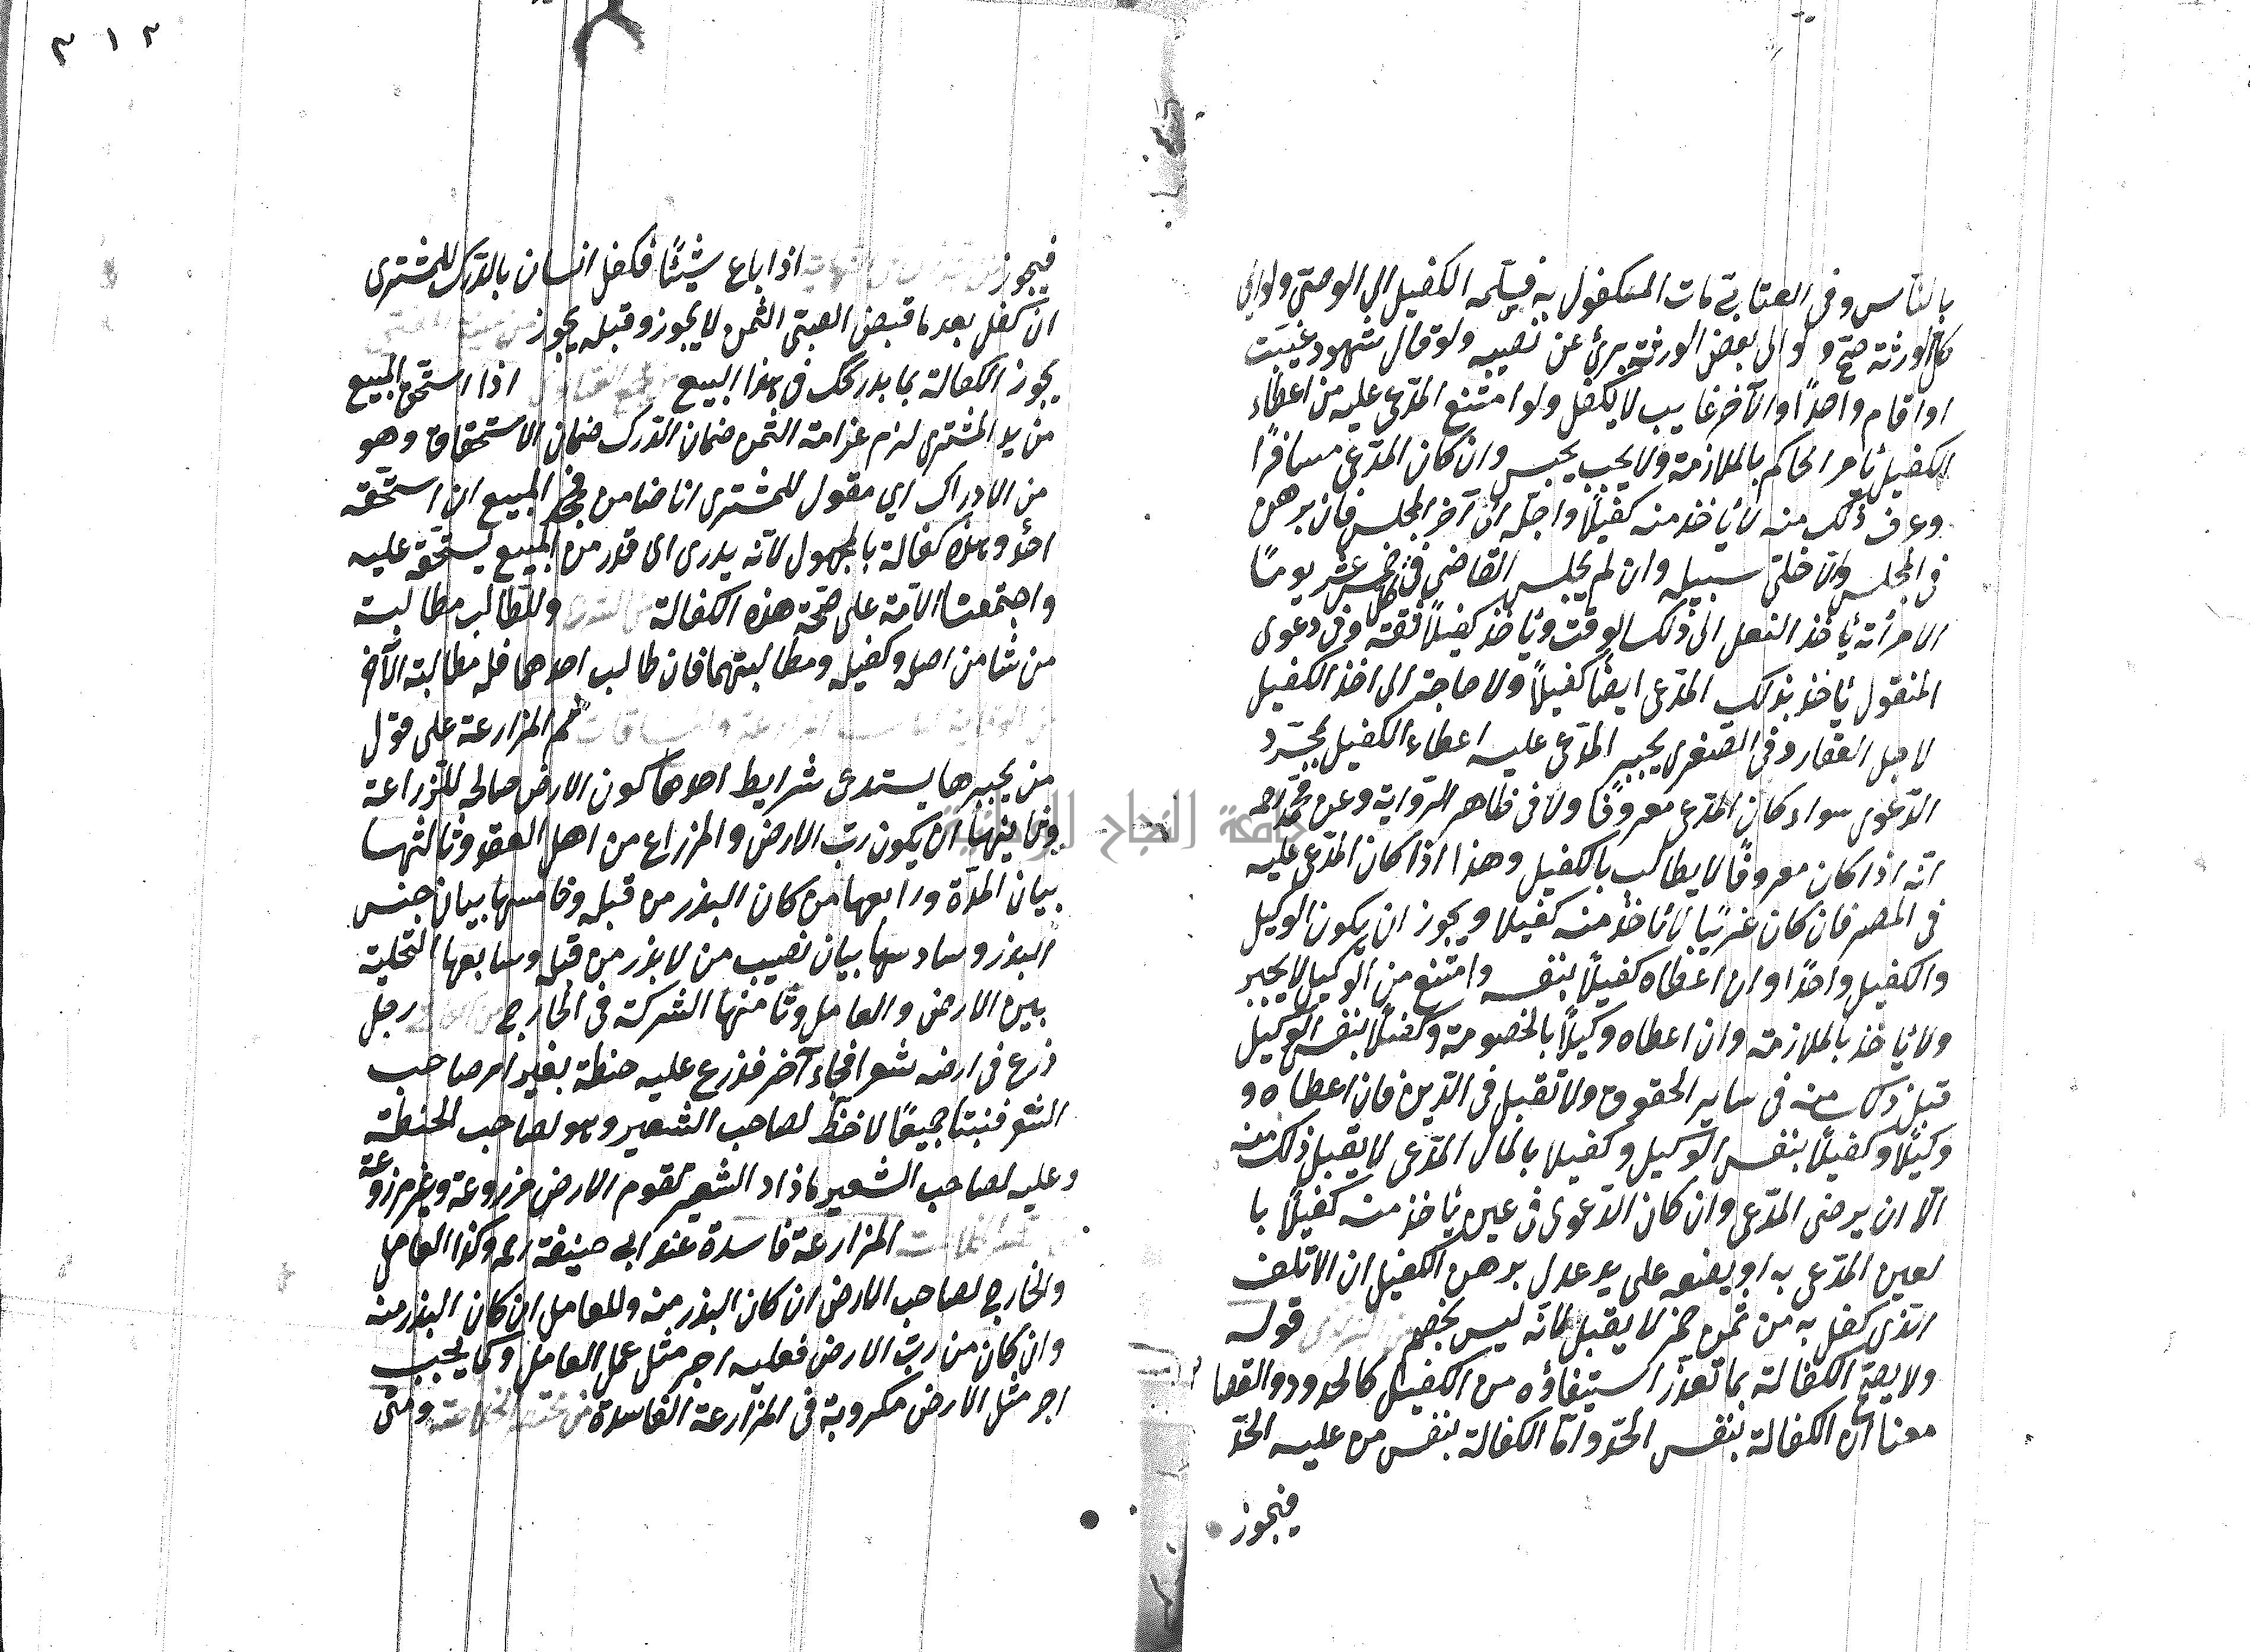 بالناس وفى العتابى مات المكفول به فسلمه الكفيل الى الوصى ولو الى
كل الورثة صح ولو الى بعض الورثة برئ عن نصيبه ولو قال شهود غيبت
او اقام واحدًا والآخر غايب لا يكفل ولو امتنع المدّعى عليه من اعطاء
الكفيل يأمر الحاكم بالملازمة ولا يجب يحبس وان كان المدّعى مسافرًا
وعرف ذلك منه لا ياخذ منه كفيلاً واجّله الى آخر المجلس فان برهن
فى المجلس والا خلّى سبيله وان لم يجلس القاضى فى خمس عشر يومًا
الامرأة ياخذ الى ذلك الوقت وياخذ كفيلاً ثقة وفى دعوى
المنقول ياخذ بذلك المدّعى ايضًا كفيلاً ولا حاجة الى اخذ الكفيل
لاجل العقار وفى الصغرى يجبر المدّعى عليه اعطاء الكفيل بمجرّد
الدّعوى سواء كان المدّعى معروفًا ولا فى ظاهر الرواية وعن محمد رحمه
انّه اذا كان معروفًا لا يطالب بالكفيل وهذا اذا كان المدّعى عليه
فى المصر فان كان غريبًا لا ياخذ منه كفيلا ويجوز ان يكون الوكيل
والكفيل واحدًا وان اعطاه كفيلاً بنفسه وامتنع من الوكيل لا يجبر
ولا ياخذ بالملازمة وان اعطاه وكيلاً بالخصومة وكفيلاً بنفس الوكيل
قبل ذلك منه فى ساير الحقوق ولا تقبل فى الدّين فان اعطاه و
وكيلاً وكفيلاً بنفس الوكيل وكفيلا بالمال المدّعى لا يقبل ذلك منه
الّا ان يرضى المدّعى وان كان الدّعوى فى عين ياخذ منه كفيلاً با
لعين المدّعى به او يضعه على يد عدل برهن الكفيل ان الاتلف
الّذى كفل به من ثمن خمر لا يقبل لانّه ليس بخصم قوله
ولا يصح الكفالة بما تعذّر استيفاؤه من الكفيل كالحدود والقصا
معناه الكفالة بنفس الحدّ وامّا الكفالة بنفس من عليه الحدّ
فيجوز
٣١٢
فيجوز اذا باع شيئًا فكفل انسان بالدّرك للمشترى
ان كفل بعد ما قبض الصبى الثمن لا يجوز وقبله يجوز
يجوز الكفالة بما يدركك فى هذا البيع اذا استحق المبيع
من يد المشترى لزم غرامة الثمن ضمان الدرك ضمان الاستحقاق وهو
من الادراك اى مقول للمشترى انا ضامن المبيع ان استحقه
احد وهذه كفالة بالمجهول لانّه يدرى اى قدر من المبيع يستحق عليه
واجتمعت الامّة على صحّة هذه الكفالة وللطّالب مطالبة
من شا من اصله وكفيله ومطالبتهما فان طالب احدهما فله مطالبة الآخر
ثم المزارعة على قول
من يجيزها يستدعى شرايط احدها كون الارض صالحة للزراعة
وثانيها ان يكون ربّ الارض والمزراع من اهل العقد وثالثها
بيان المدّة ورابعها من كان البذر من قبله وخامسها بيان جنس
البذر وسادسها بيان نصيب من لا بذر من قبله وسابعها التخلية
بين الارض والعامل وثامنها الشركة فى الخارج رجل
زرع فى ارضه شعيرا فجاء آخر فزرع عليه حنطة بغير امر صاحب
الشعير فنبتا جميعًا لصاحب الشعير وهو لصاحب الحنطة
وعليه لصاحب الشعير ما ذاد الشعير تقوم الارض مزروعة وغير مزروعة
المزارعة فاسدة عند ابى حنيفة رحمه وكذا العامل
والخارج لصاحب الارض ان كان البذر منه وللعامل ان كان البذر منه
وان كان من ربّ الارض فعليه اجر مثل عمل العامل وكما يجب
اجر مثل الارض مكروبة فى المزارعة الفاسدة ومتى
جامعة النجاح الوطنية